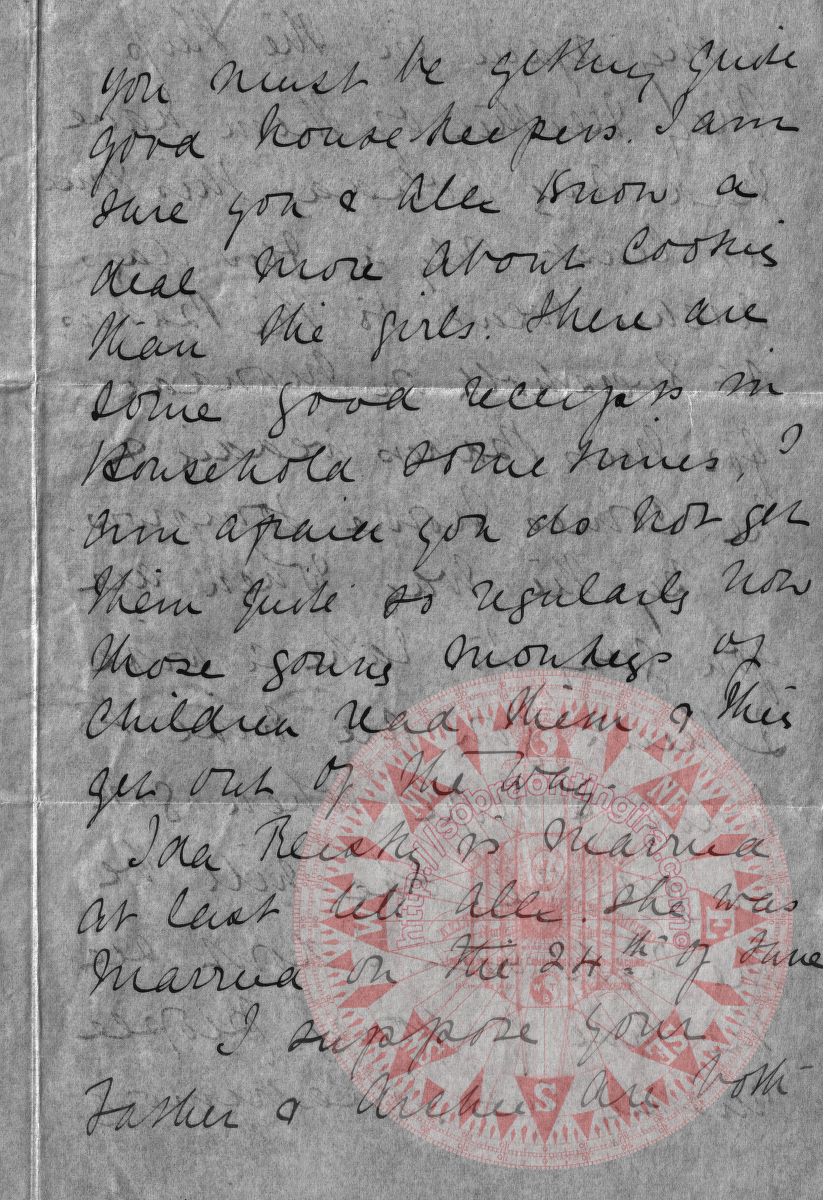 you must be getting quite
good housekeepers. I am
sure you & Alec know a
deal more about Cooking
than the girls. There are
some good receipts in
Household some times, I
am afraid you do not get
them quite so regularly now
those young monkeys of
children read them & they
get out of the way.
Ida is Married
at last tell Alec. She was
Married on the 24th of June
I suppose your
Father & Archie are both
N
NE
E
SE
S
SW
W
NW